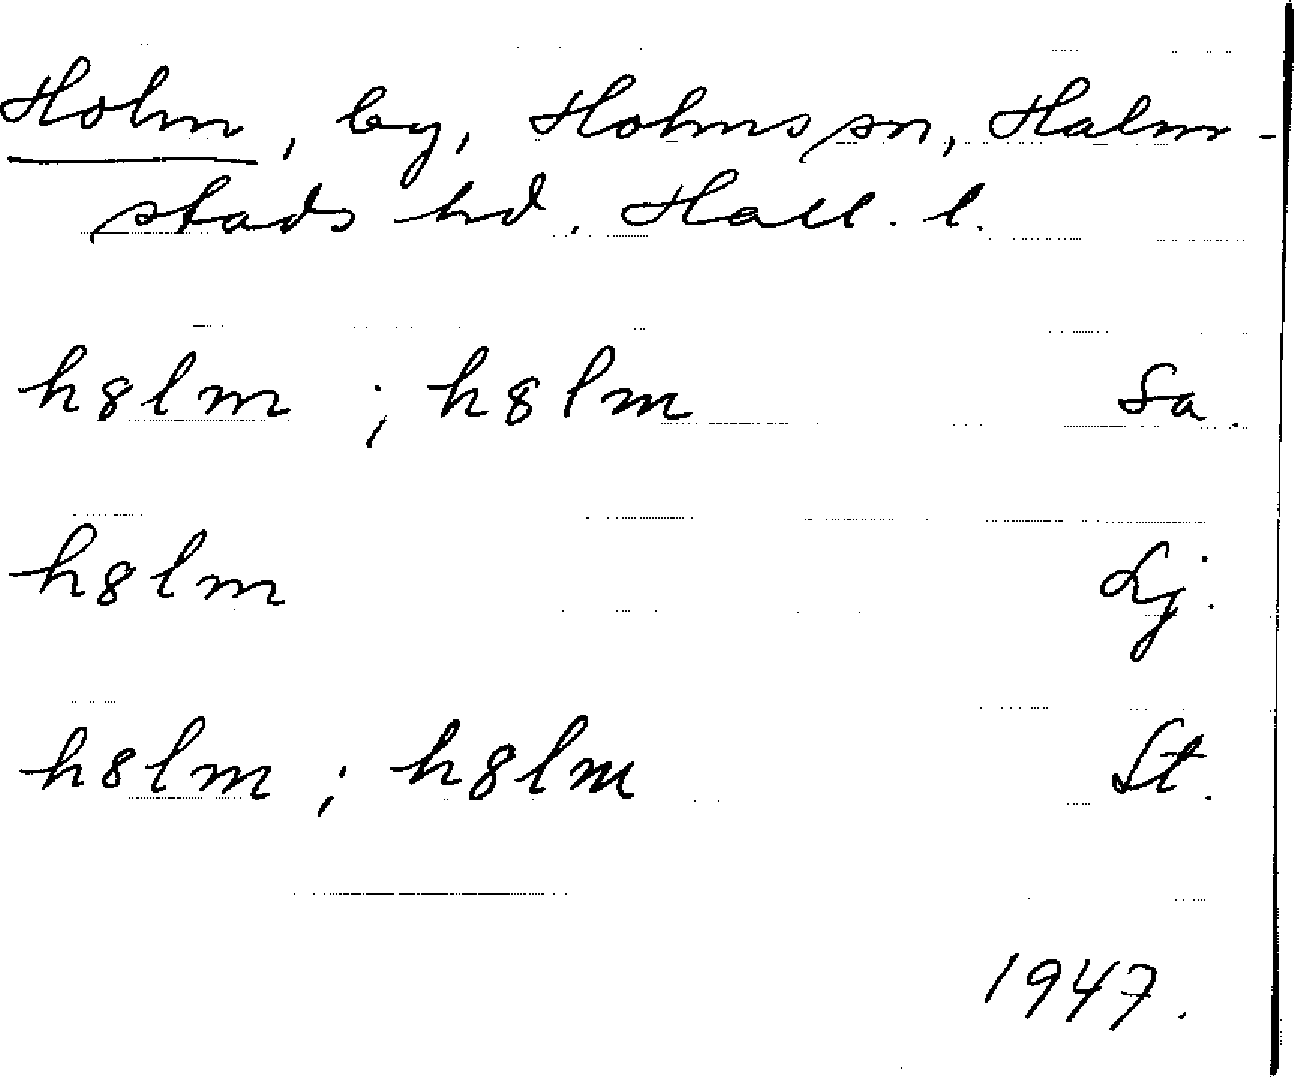 Holm, by, Holms sn, Halm-
stads hd. Hall. l.
h8lm ; h8lm Sa.
h8lm Lj.
h8lm ; h8lm St.
1947.